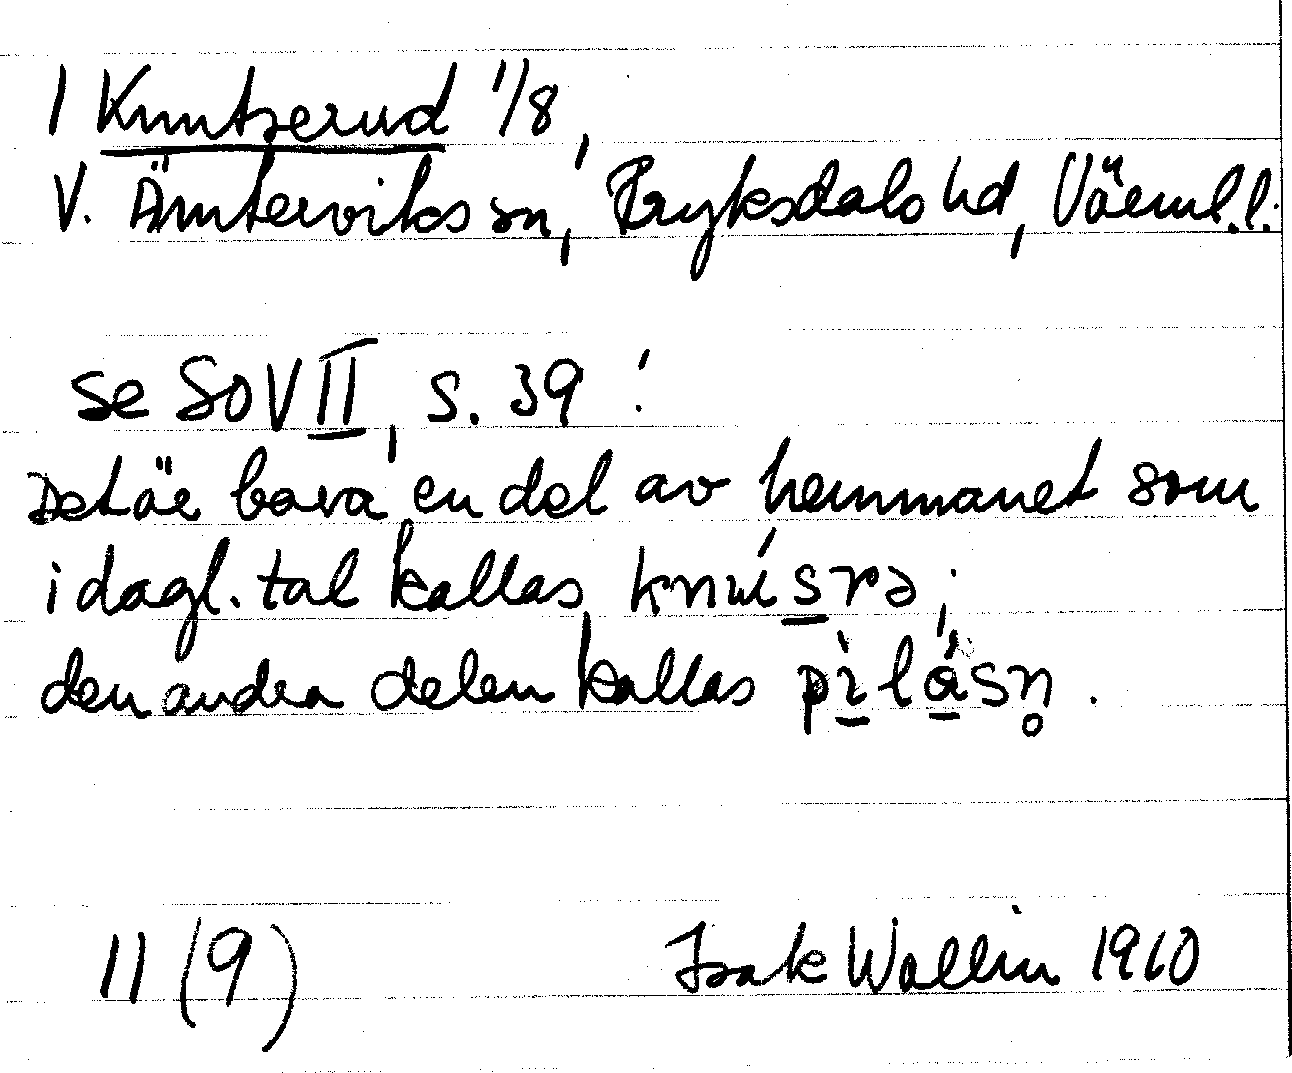 1 Knutserud 1/8,
V. Ämterviks sn, Fryksdals hd, Värml.l.
se SOV II, s. 39:
Det är bara en del av hemmanet som
i dagl. tal kallas knɯ́srə;
den andra delen kallas pìlåsn̥.
11 (9) Isak Wallin 1960